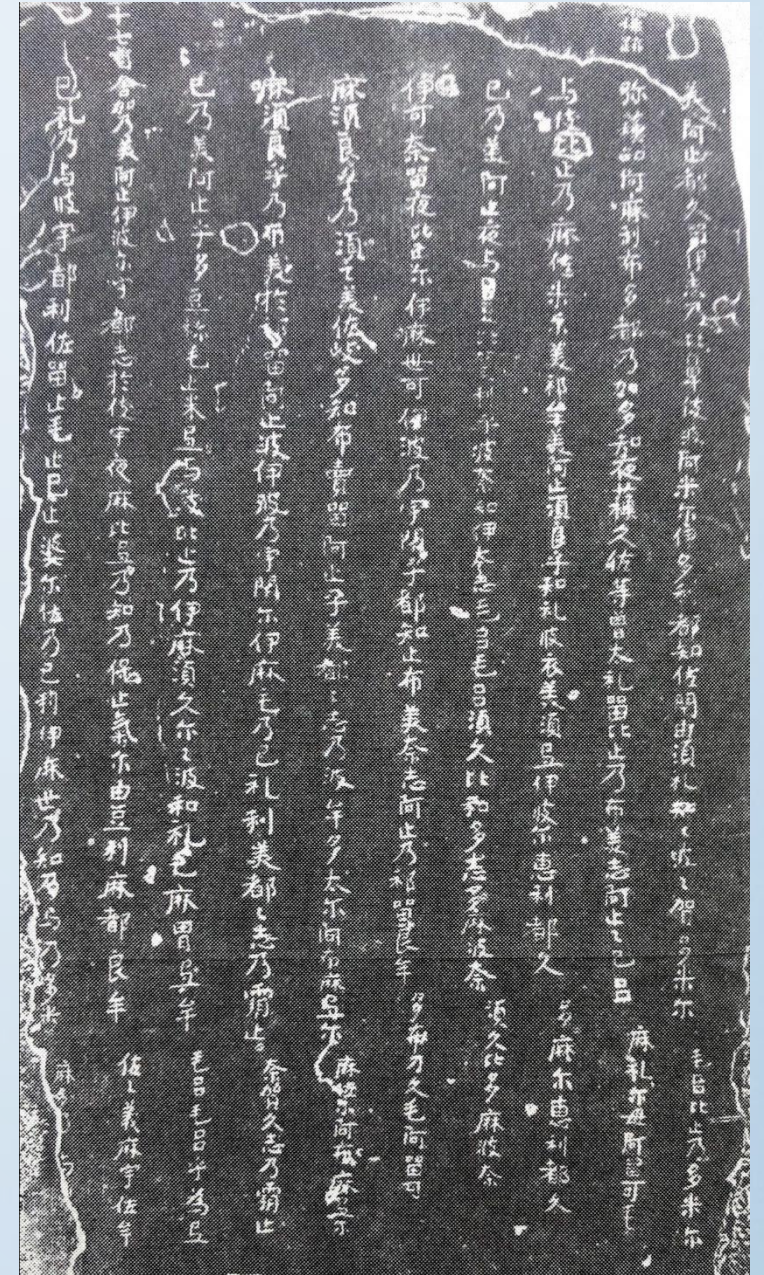 美阿止都久留伊志乃比鼻伎波阿米尓伊多利都知佐閇由須礼知々波々賀多米尓 毛呂比止乃多米尓
弥蘇知阿麻利布多都乃加多知夜蘇久佐等曽太礼留比止乃布美志阿止々己呂 麻礼尓母阿留可毛
与伎比止乃麻佐米尓美祁牟美阿止須良乎和礼波衣美須弖伊波尓恵利都久 多麻尓恵利都久
己乃美阿止夜与利乎波奈知伊太志毛呂毛呂須久比和多志多麻波奈 須久比多麻波奈
伊可奈留夜比止尓伊麻世可伊波乃宇閇乎都知止布美奈志阿止乃祁留良牟 多布刀久毛阿留可
麻須良乎乃須々美佐岐多知布賣留阿止乎美都々志乃波牟多太尓阿布麻弖尓 麻佐尓阿布麻弖尓
麻須良乎乃布美於祁留阿止波伊波乃宇閇尓伊麻毛乃己礼利美都々志乃覇止 奈賀久志乃覇止
己乃美阿止乎多豆祢毛止米弖与伎比止乃伊麻須久尓々波和礼毛麻胃弖牟 毛呂毛呂乎為弖
舎賀乃美阿止伊波尓宇都志於伎宇夜麻比弖乃知乃保止氣尓由豆利麻都良牟 佐々義麻宇佐牟
己礼乃与波宇都利佐留止毛止己止婆尓佐乃己利伊麻世乃知乃与乃多米